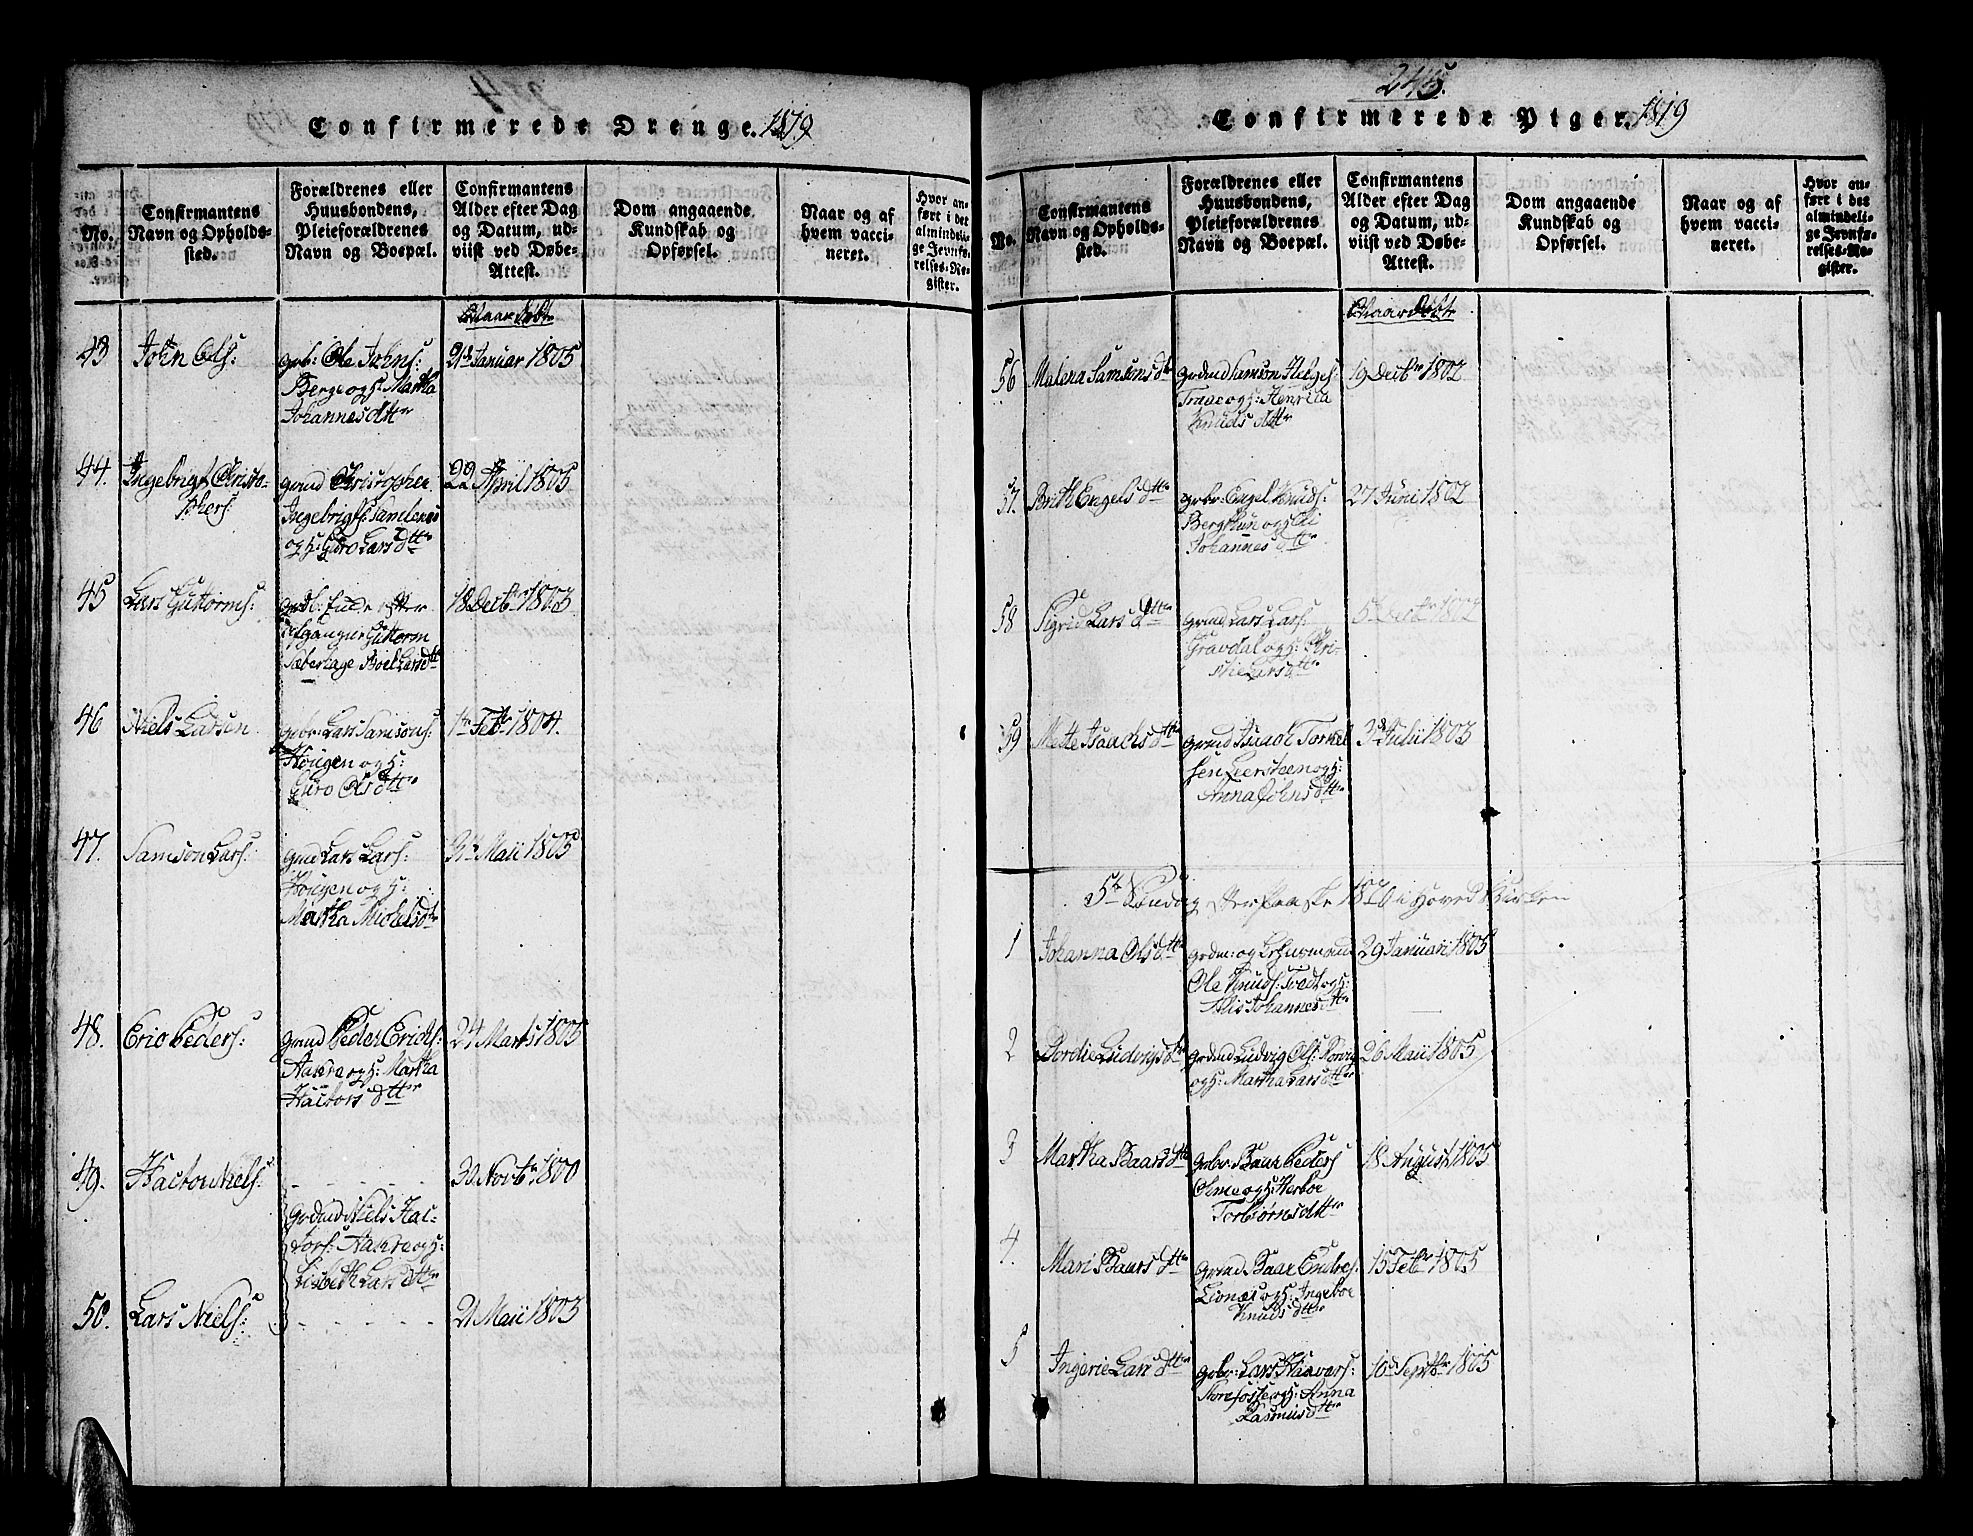 Confirmerede Drenge. 1819
No.
Confirmantens
Navn og Opholds-
sted.
Forældrenes eller
Huusbondens,
Pleieforældrenes
Navn og Boepæl.
Confirmantens
Alder efter Dag
og Datum, ud-
viist ved Døbe-
Attest.
Dom angaaende
Kundskab og
Opførsel.
Naar og af
hvem vacci-
neret.
Hvor an-
ført i det
almindeli-
ge Jevnfø-
relses-Re-
gister.
Naar Døbt
43
John Ols:
gbr: Ole Johns:
Berge og H: Martha
Johannes dttr
21 Januar 1805
44.
Ingebrigt Christo-
phers:
grmd Christopher
Ingebrigts:
og H: Guro Lars dttr
22 April 1805
45
Lars Guttorms:
Guttorm
Lars dttr
18 Decbr 1803
46
Niels Larsen
gbr: Lars Samsons:
Hougen og H:
Guro Ols dttr
1te Febr 1804.
47.
Samson Lars:
grmd Lars Lars:
Hougen og H:
Martha Michels dtr
31te Maii 1805
48.
Eric Peders:
grmd Peder Erichs:
Aakra og H: Martha
Hactors dttr
24 Marts 1805
49.
Hactor Niels:
30 Novbr 1800
grdmd Niels Hac-
tors: Aakra og H:
Lisbeth Lars dttr
50.
Lars Niels:
21 Maii 1803
245.
Confirmerede Piger. 1819
No.
Confirmantens
Navn og Opholds-
sted.
Forældrenes eller
Huusbondens,
Pleieforældrenes
Navn og Boepæl.
Confirmantens
Alder efter Dag
og Datum, ud-
viist ved Døbe-
Attest.
Dom angaaende
Kundskab og
Opførsel.
Naar og af
hvem vacci-
neret.
Hvor an-
ført i det
almindeli-
ge Jevnfø-
relses-Re-
gister.
Naar Døbt
56
Malena Samsons dtr
grdmd Samson Helges:
Traae og H: Henrica
Knuds dttr
19 Decbr 1802
57.
Brith Engels dtr
gbr: Engel Knuds:
og H:
Johannes dttr
27 Juni 1802
58
Sigrid Lars dttr
grmd Lars Lars:
Gravdal og H: Chri-
stie Lars dttr
5 Decbr 1802
59
Mette Isaachs dttr
grmd Isaach Torkel
sen Leersteen og H:
Anna Johns dttr
3d Julii 1803
5te Søndag efter Paaske 1820 i Hoved Kirken
1
Johanna Ols dttr
Ole Knuds: Tvedt og H:
Johannes dttr
29 Januari 1805
2
Bordie Ludvigs dtr
grdmd Ludvig Ols:
og H: Martha Lars dttr
26 Maii 1805
3
Martha Baars dttr
gbr: Baar Peders
Ølme og H: Herbor
Torbiørns dttr
18 August 1805
4.
Mari Baars dttr
grmd Baar Endres:
og H: Ingebor
Knuds dttr
15 Febr 1805
5
Ingerie Lars dttr
gbr: Lars Haavars:
og H: Anna
Rasmus dttr
10 Septbr 1805